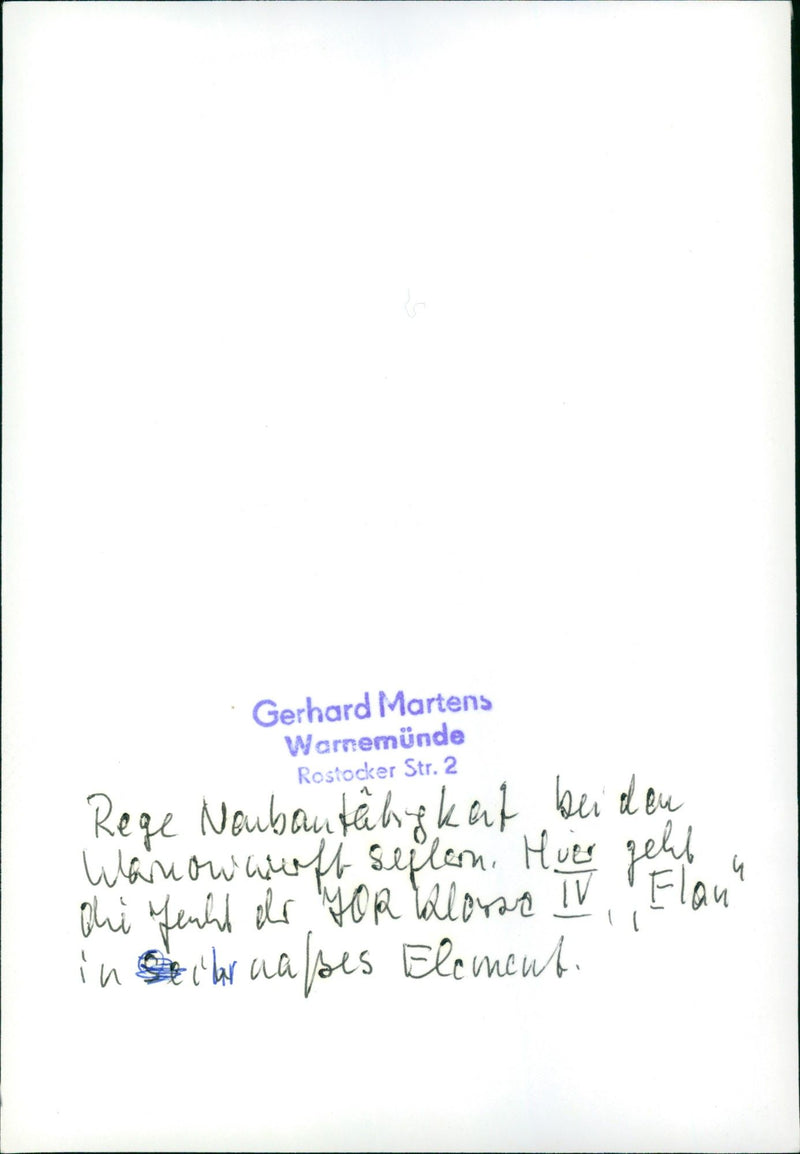 Gerhard Martens
Warnemünde
Rostocker Str. 2
Rege Neubautätigkeit bei den
Warnowwerft Seglern. Hier geht
die Jacht der JOR Klasse IV, „Elan“
in ihr naßes Element.